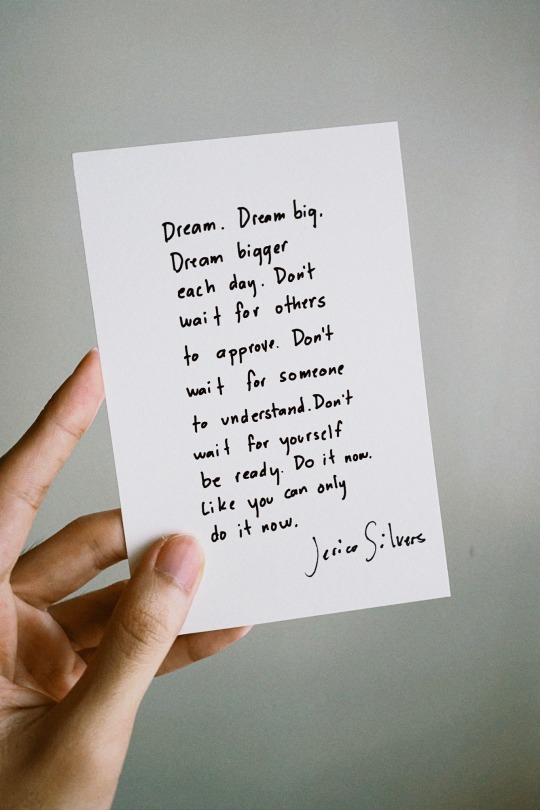 Dream. Dream big.
Dream bigger
each day. Don't
wait for others
to approve. Don't
wait for someone
to understand. Don't
wait for yourself
be ready. Do it now.
Like you can only
do it now.
Jerico Silvers